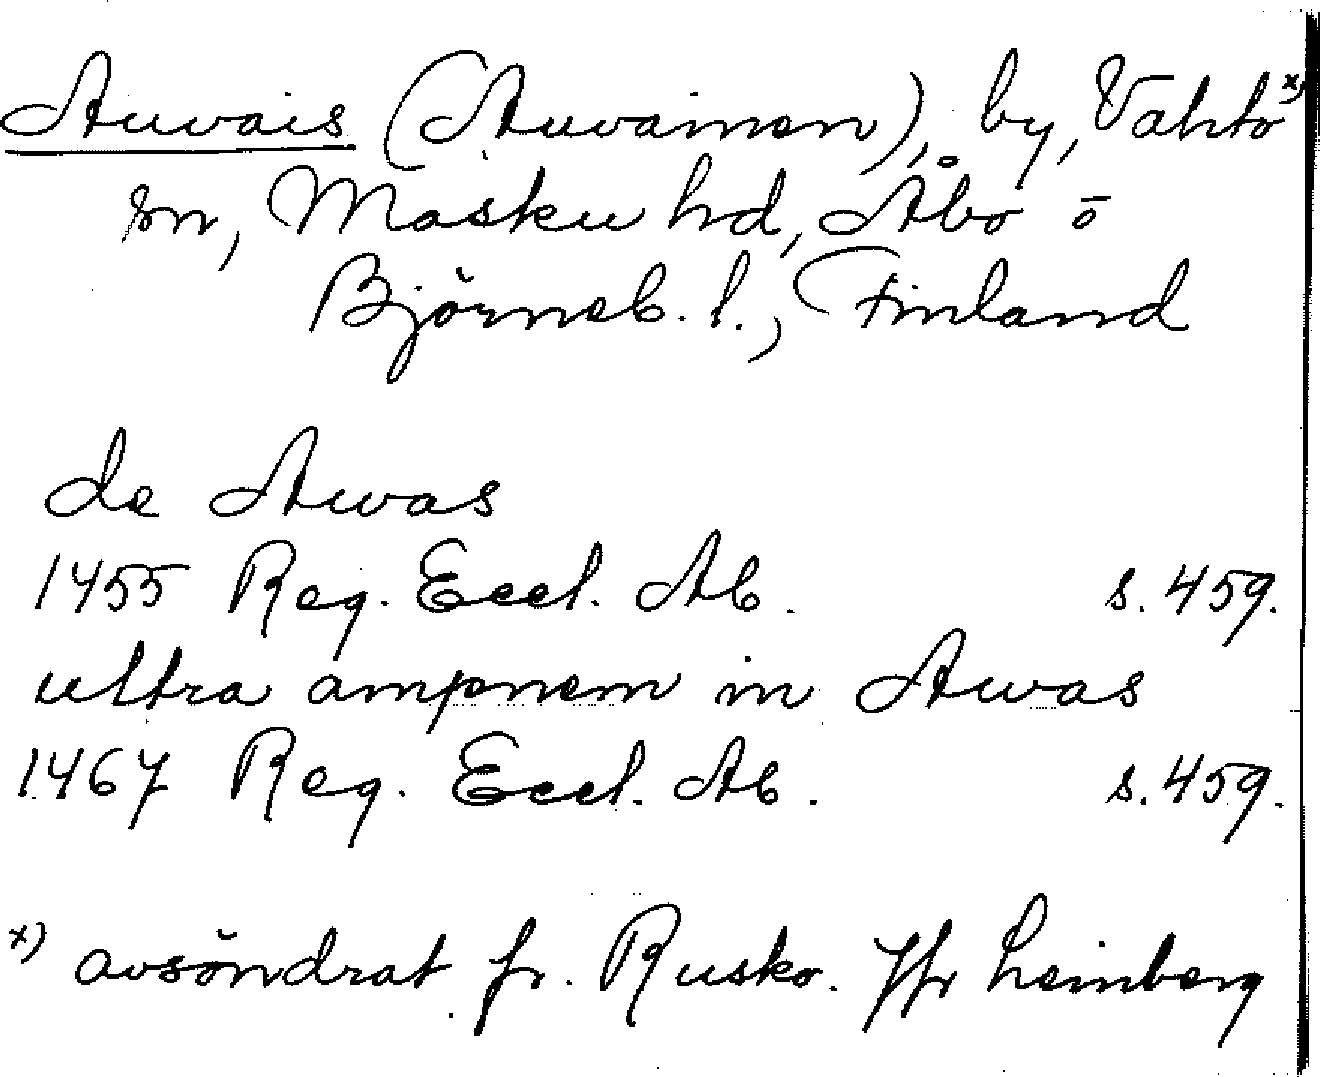 Auvais (Auvainen), by, Vahto x)
sn, Masku hd, Åbo o
Björneb. l., Finland
de Auvas
1455 Reg. Eccl. Ab. s. 459.
ultra ampnem in Auvas
1467 Reg. Eccl. Ab. s. 459.
x) avsöndrat fr. Rusko. Jfr Leinberg